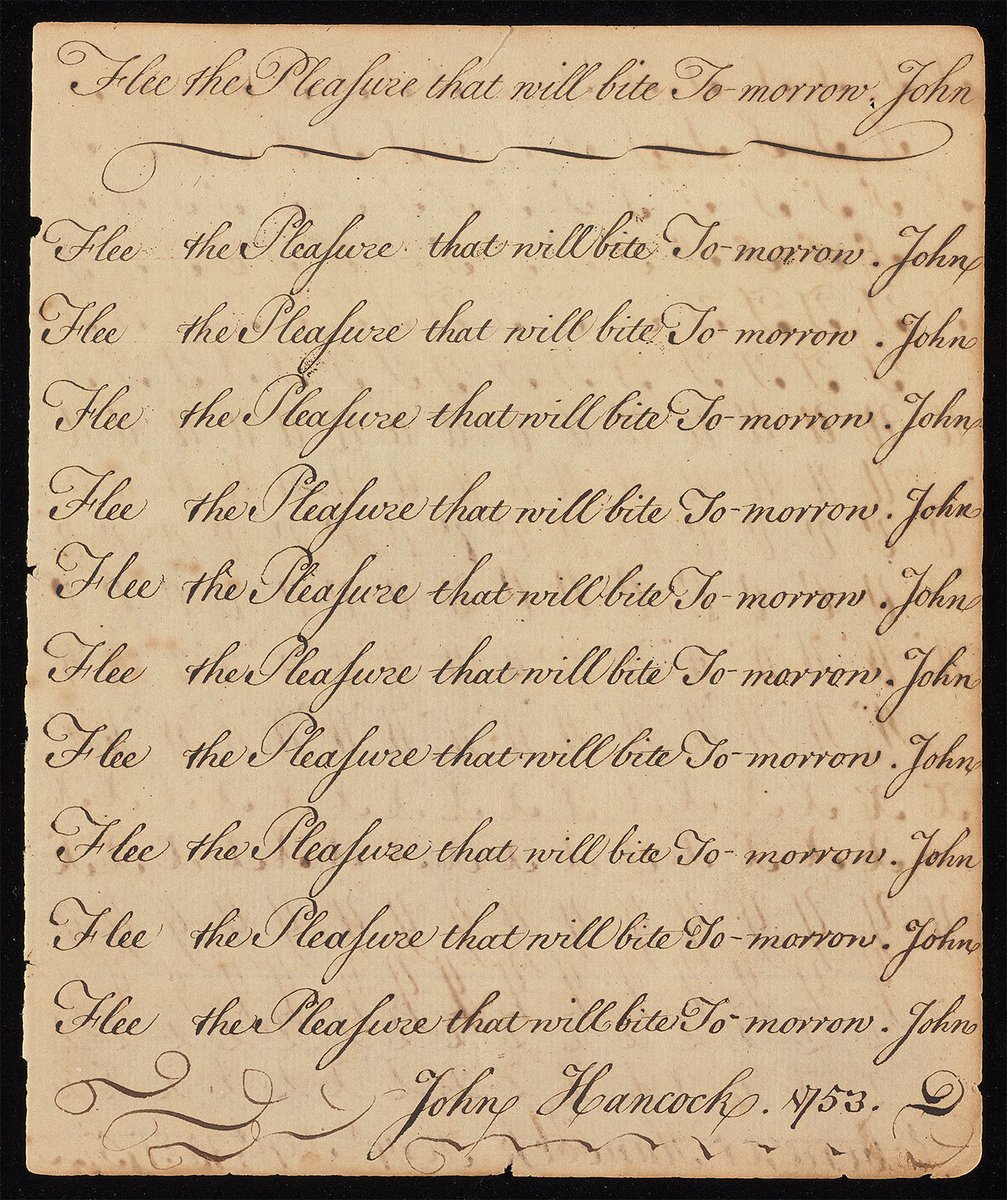 Flee the Pleaſure that will bite To-morrow. John
Flee the Pleaſure that will bite To-morrow. John
Flee the Pleaſure that will bite To-morrow. John
Flee the Pleaſure that will bite To-morrow. John
Flee the Pleaſure that will bite To-morrow. John
Flee the Pleaſure that will bite To-morrow. John
Flee the Pleaſure that will bite To-morrow. John
Flee the Pleaſure that will bite To-morrow. John
Flee the Pleaſure that will bite To-morrow. John
Flee the Pleaſure that will bite To-morrow. John
Flee the Pleaſure that will bite To-morrow. John
John Hancock. 1753.